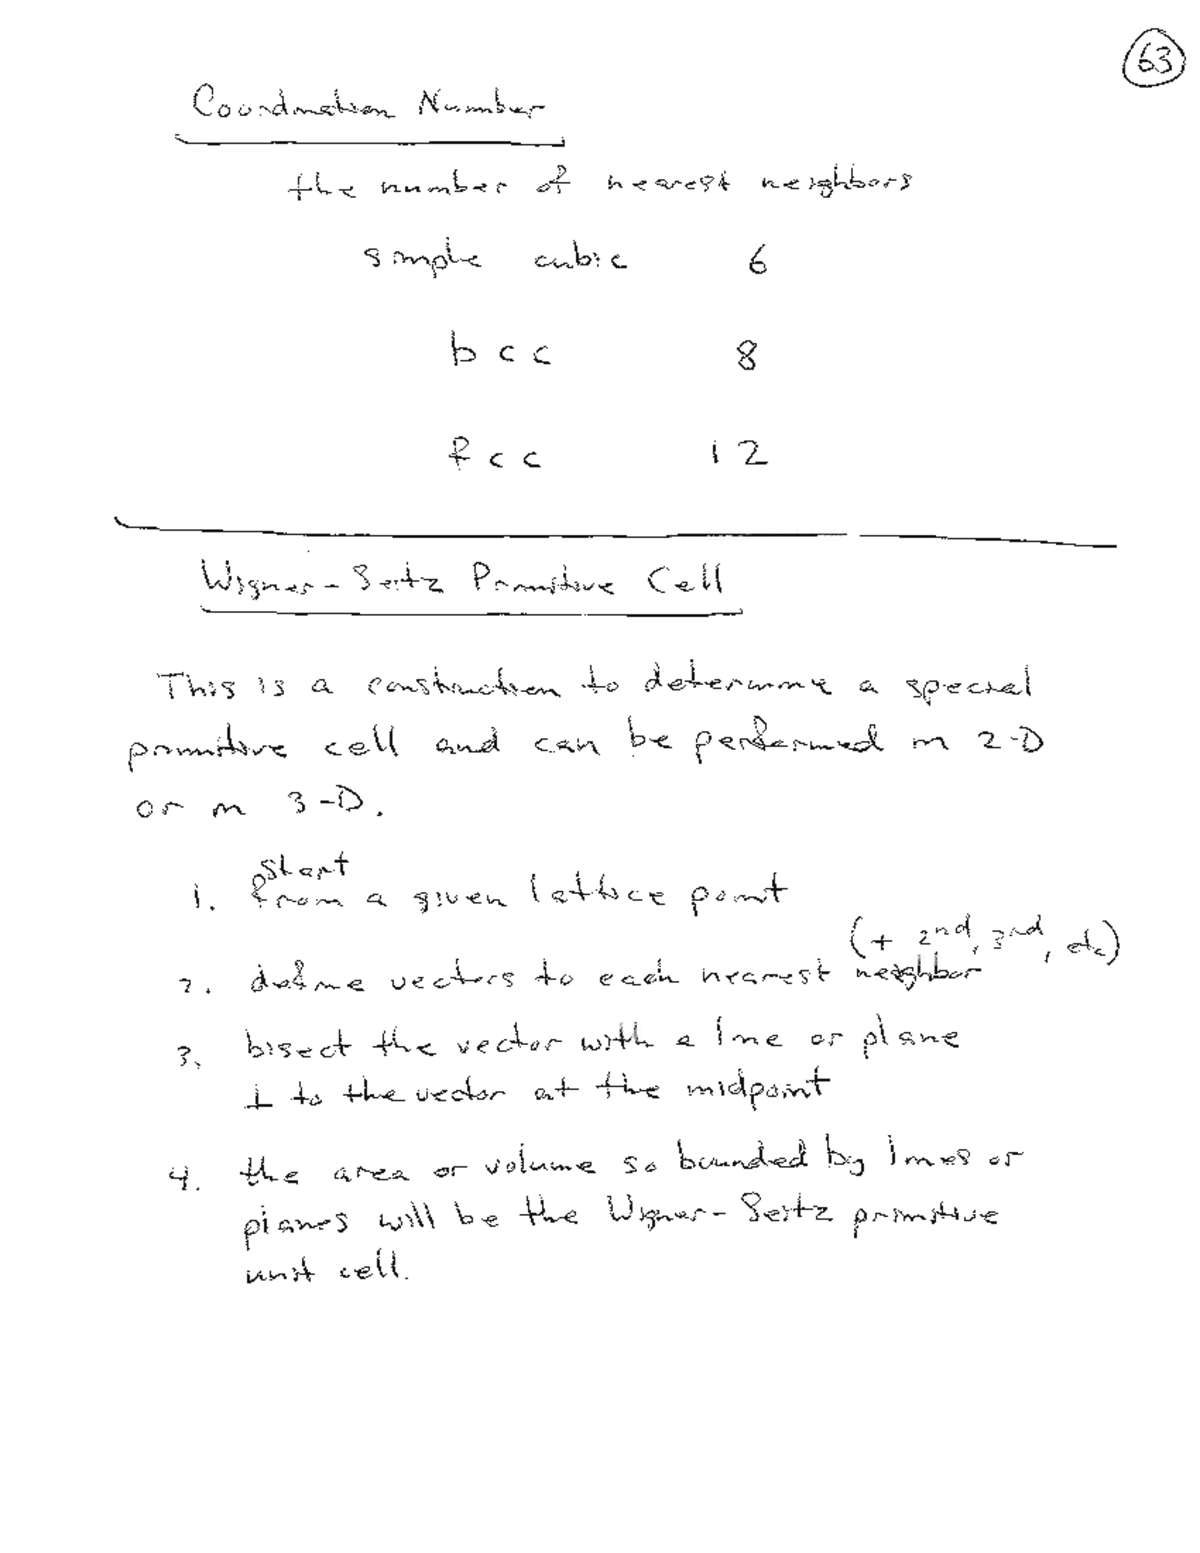 63
Coordination Number
the number of nearest neighbors
simple cubic 6
bcc 8
fcc 12
Wigner-Seitz Primitive Cell
This is a construction to determine a special
primitive cell and can be performed in 2-D
or in 3-D.
start
1. from a given lattice point
(+ 2nd, 3rd, etc)
2. define vectors to each nearest neighbor
3. bisect the vector with a line or plane
⊥ to the vector at the midpoint
4. the area or volume so bounded by lines or
planes will be the Wigner-Seitz primitive
unit cell.